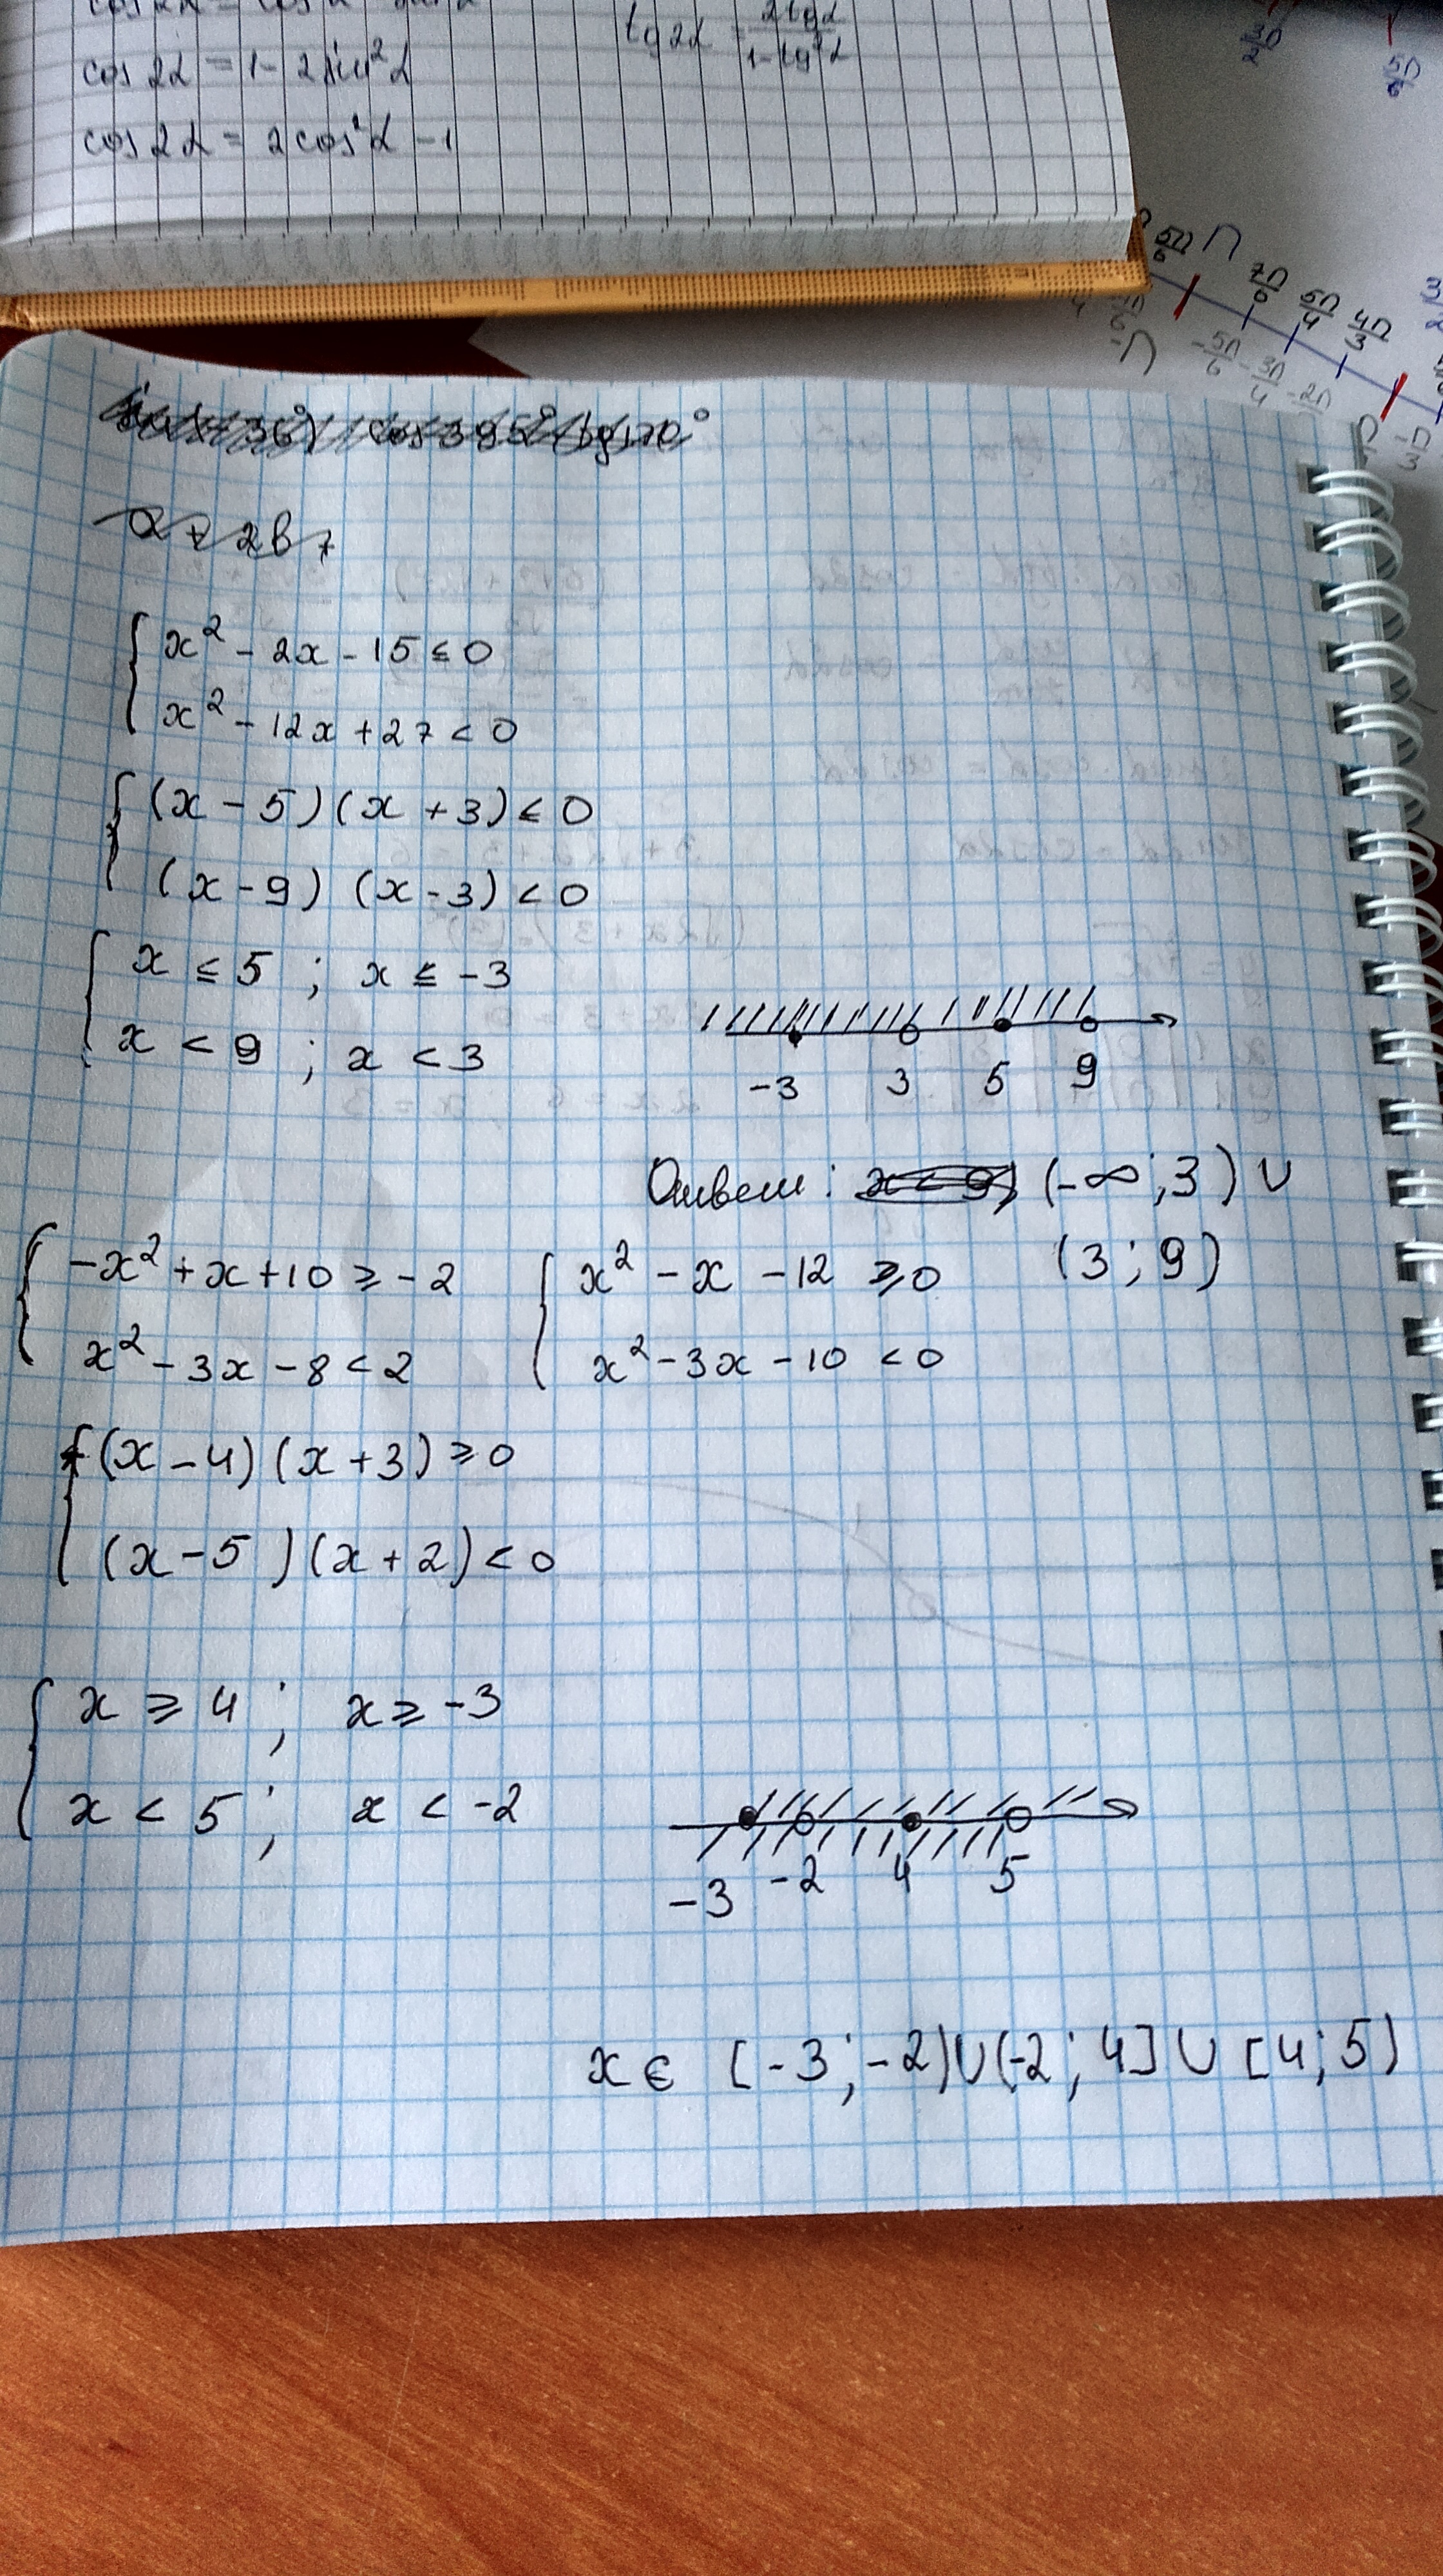 cos 2α = 1 - 2 sin²α
tg 2α = 2tgα / 1 - tg²α
cos 2α = 2cos²α - 1
5П/6 П 7П/6 5П/4 4П/3
-П -5П/6 -3П/4 -2П
-П/3
3П/2
5П/6
x² - 2x - 15 ≤ 0
x² - 12x + 27 < 0
(x - 5)(x + 3) ≤ 0
(x - 9) (x - 3) < 0
x ≤ 5 ; x ≤ -3
x < 9 ; x < 3
-3 3 5 9
Ответ: (-∞; 3) ∪
(3; 9)
-x² + x + 10 ≥ -2
x² - 3x - 8 < 2
x² - x - 12 ≥ 0
x² - 3x - 10 < 0
(x - 4)(x + 3) ≥ 0
(x - 5)(x + 2) < 0
x ≥ 4 ; x ≥ -3
x < 5 ; x < -2
-3 -2 4 5
x ∈ [-3; -2) ∪ (-2; 4] ∪ [4; 5)